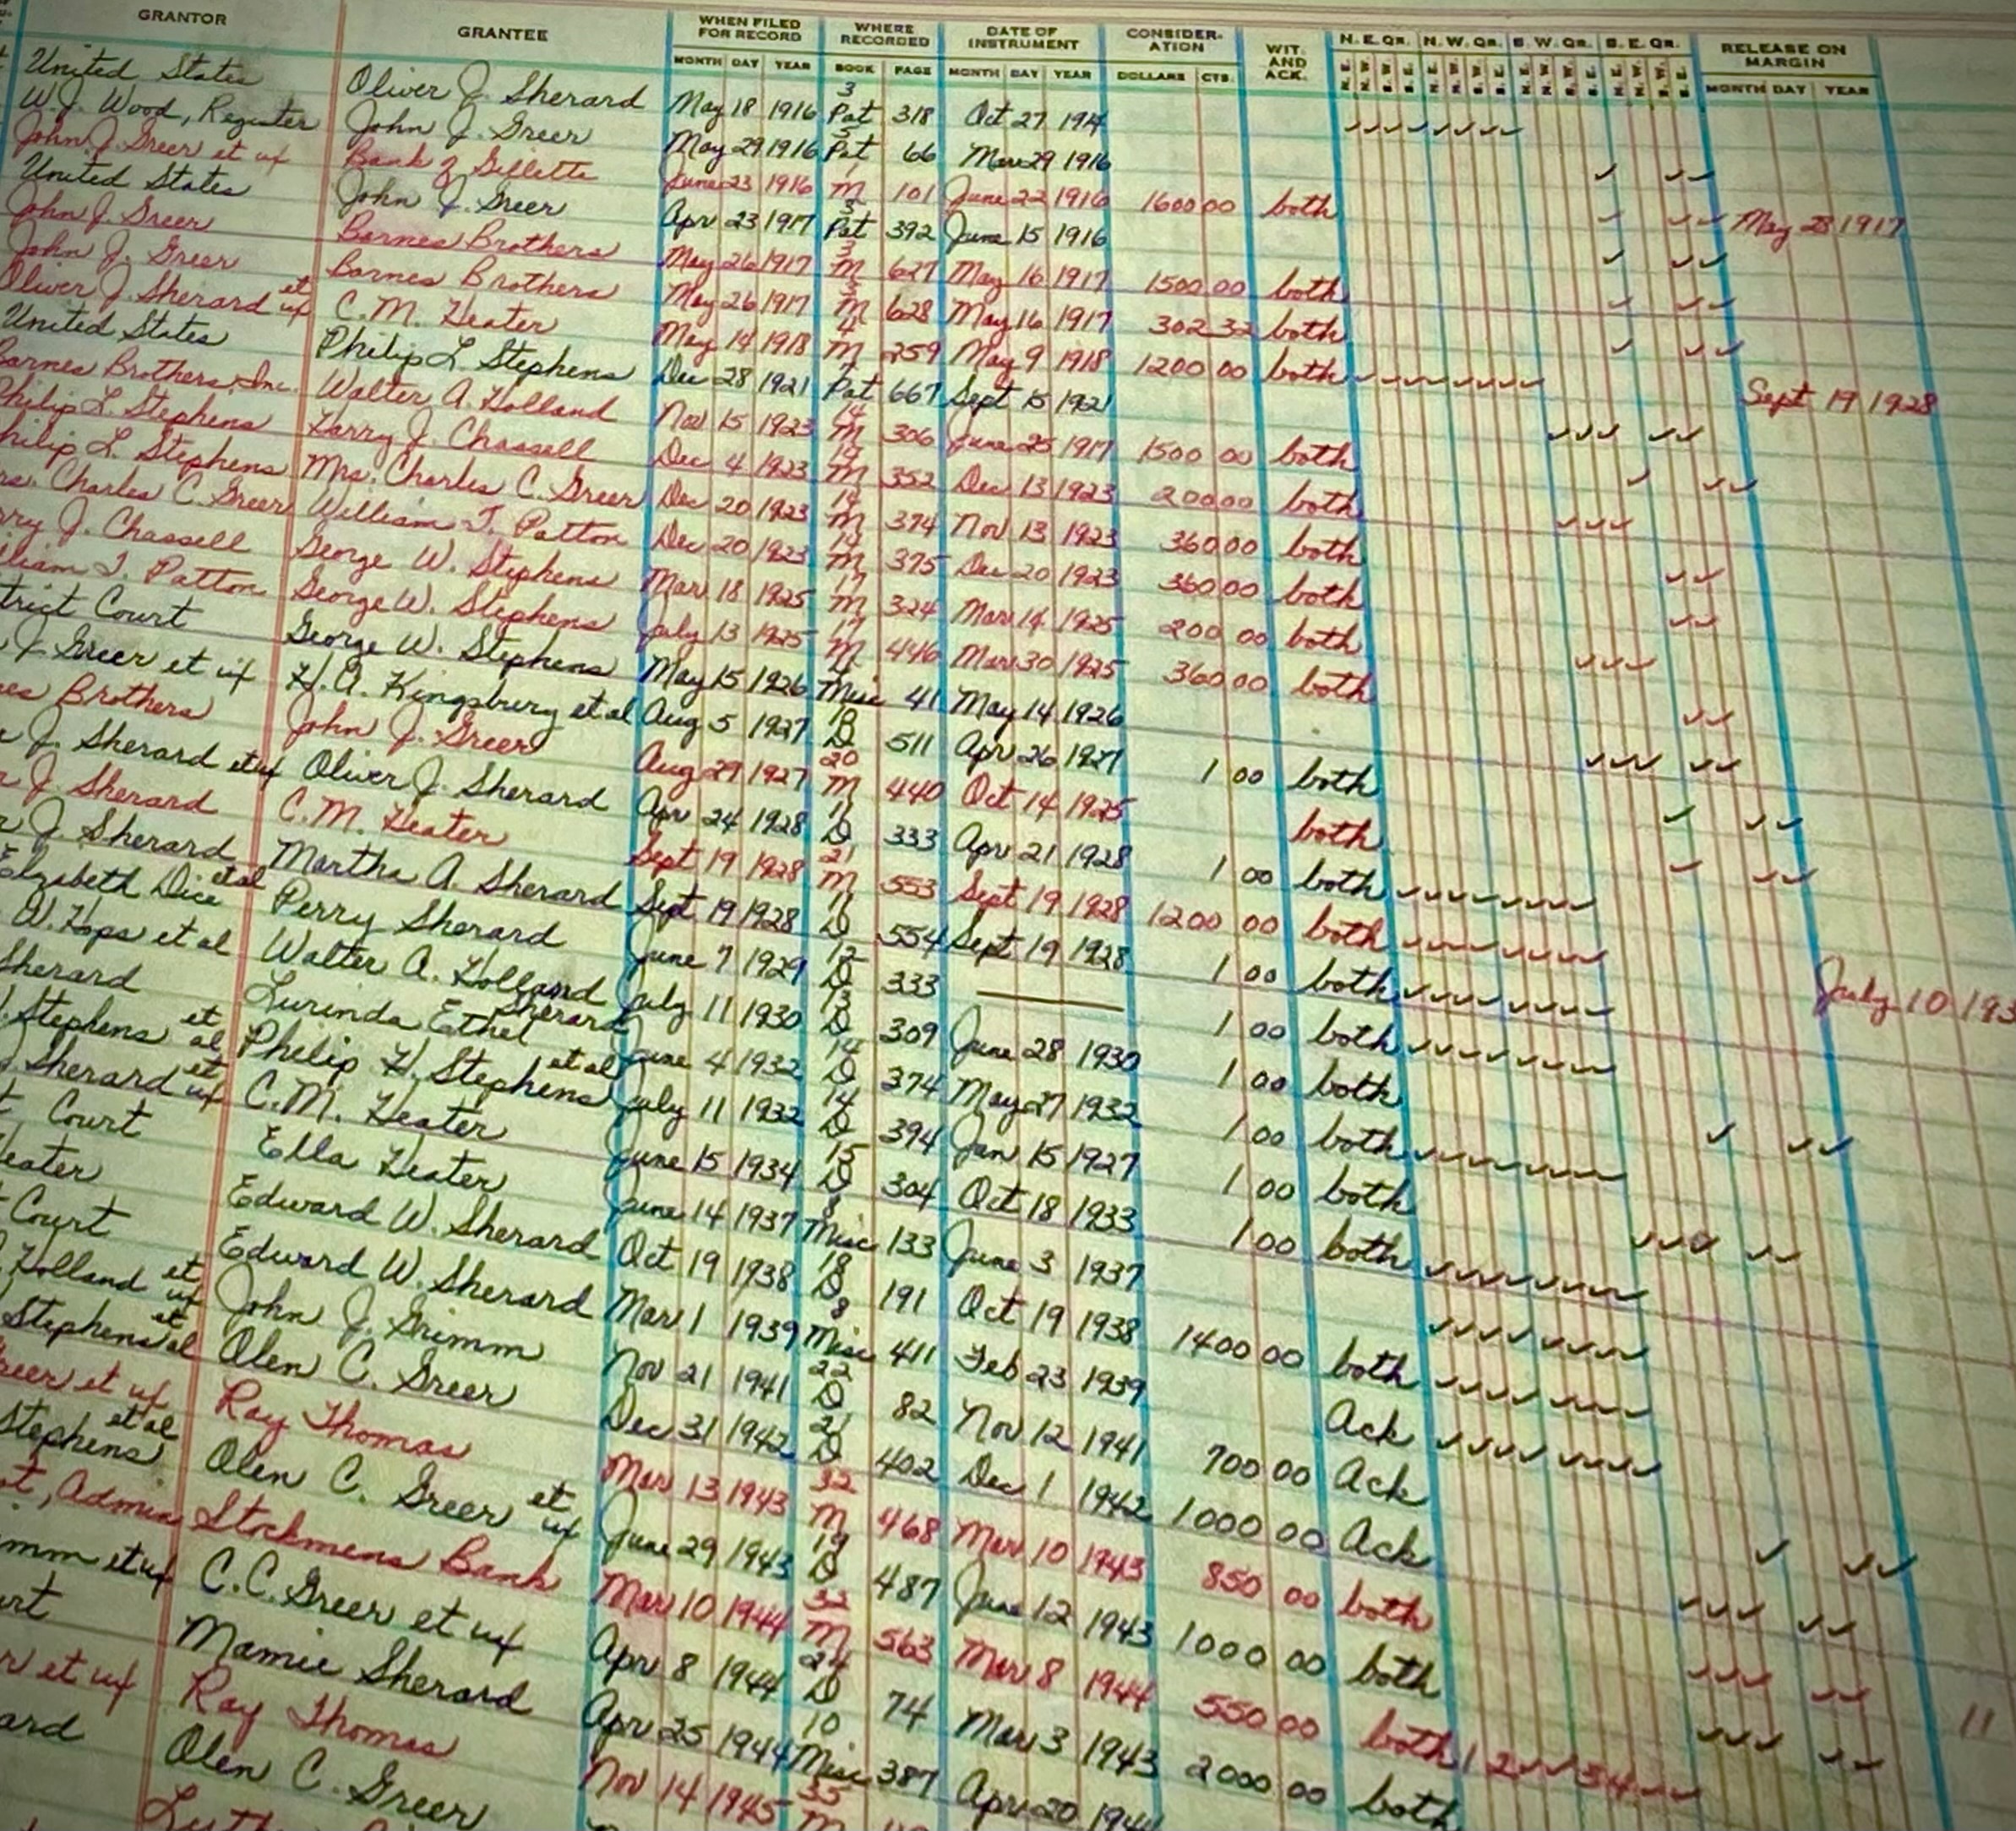 GRANTOR GRANTEE WHEN FILED FOR RECORD WHERE RECORDED DATE OF INSTRUMENT CONSIDERATION WIT. AND ACK. N. E. QR. N. W. QR. S. W. QR. S. E. QR. RELEASE ON MARGIN
MONTH DAY YEAR BOOK PAGE MONTH DAY YEAR DOLLARS CTS. MONTH DAY YEAR
United States Oliver J. Sherard May 18 1916 3 Pat 318 Oct 27 1914
W. J. Wood, Register John J. Greer May 29 1916 5 Pat 66 Mar 29 1916
John J. Greer et ux Bank of Gillette June 23 1916 M 101 June 22 1916 1600 00 both May 28 1917
United States John J. Greer Apr 23 1917 3 Pat 392 June 15 1916
John J. Greer Barnes Brothers May 26 1917 3 M 627 May 16 1917 1500 00 both
John J. Greer Barnes Brothers May 26 1917 3 M 628 May 16 1917 302 32 both
Oliver J. Sherard et ux C. M. Heater May 14 1918 4 M 259 May 9 1918 1200 00 both Sept 19 1928
United States Philip L Stephens Dec 28 1921 Pat 667 Sept 15 1921
Barnes Brothers, Inc. Walter A. Holland Nov 15 1923 14 M 306 June 25 1917 1500 00 both
Philip L. Stephens Harry J. Chassell Dec 4 1923 14 M 352 Dec 13 1923 200 00 both
Philip L. Stephens Mrs. Charles C. Greer Dec 20 1923 14 M 374 Nov 13 1923 360 00 both
rs. Charles C. Greer William T. Patton Dec 20 1923 14 M 375 Dec 20 1923 360 00 both
rry J. Chassell George W. Stephens Mar 18 1925 17 M 324 Mar 14 1925 200 00 both
lliam T. Patton George W. Stephens July 13 1925 17 M 446 Mar 30 1925 360 00 both
trict Court George W. Stephens May 15 1926 Misc 41 May 14 1926
J. Greer et ux H. A. Kingsbury et al Aug 5 1927 10 D 511 Apr 26 1927 1 00 both
es Brothers John J. Greer Aug 29 1927 20 M 440 Oct 14 1925 both
J. Sherard et ux Oliver J. Sherard Apr 24 1928 11 D 333 Apr 21 1928 1 00 both
r J. Sherard C. M. Heater Sept 19 1928 21 M 553 Sept 19 1928 1200 00 both July 10 193
r J. Sherard Martha A. Sherard Sept 19 1928 11 D 554 Sept 19 1928 1 00 both
Elizabeth Dice et al Perry Sherard June 7 1929 12 D 333 1 00 both
W. Hops et al Walter A. Holland July 11 1930 13 D 309 June 28 1930 1 00 both
Sherard Lurinda Ethel Sherard June 4 1932 14 D 374 May 27 1932 1 00 both
Stephens et al Philip H. Stephens et al July 11 1932 14 D 394 Jan 15 1927 1 00 both
Sherard et ux C. M. Heater June 15 1934 15 D 304 Oct 18 1933 1 00 both
t Court Ella Heater June 14 1937 8 Misc 133 June 3 1937
eater Edward W. Sherard Oct 19 1938 18 D 191 Oct 19 1938 1400 00 both
Court Edward W. Sherard Mar 1 1939 8 Misc 411 Feb 23 1939 Ack
Holland et ux John J. Grimm Nov 21 1941 22 D 82 Nov 12 1941 700 00 Ack
Stephens et al Olen C. Greer Dec 31 1942 21 D 402 Dec 1 1942 1000 00 Ack
reer et ux Ray Thomas Mar 13 1943 32 M 468 Mar 10 1943 850 00 both
Stephens et al Olen C. Greer et ux June 29 1943 19 D 487 June 12 1943 1000 00 both
t, Admin Stockmens Bank Mar 10 1944 32 M 563 Mar 8 1944 550 00 both 11
mm et ux C. C. Greer et ux Apr 8 1944 24 D 74 Mar 3 1943 2000 00 both
urt Mamie Sherard Apr 25 1944 10 Misc 387 Apr 20 194
r et ux Ray Thomas Nov 14 1945 35 M
ard Olen C. Greer